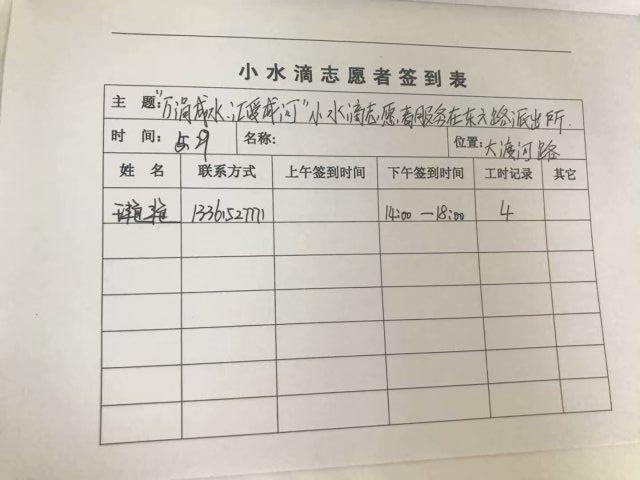 小水滴志愿者签到表
主 题:"万涓成水.汇爱成河"小水滴志愿者服务在东方路派出所.
时 间: 5.9 名称: 位置: 大渡河路
姓 名 联系方式 上午签到时间 下午签到时间 工时记录 其它
13361527771 14:00 —18:00 4